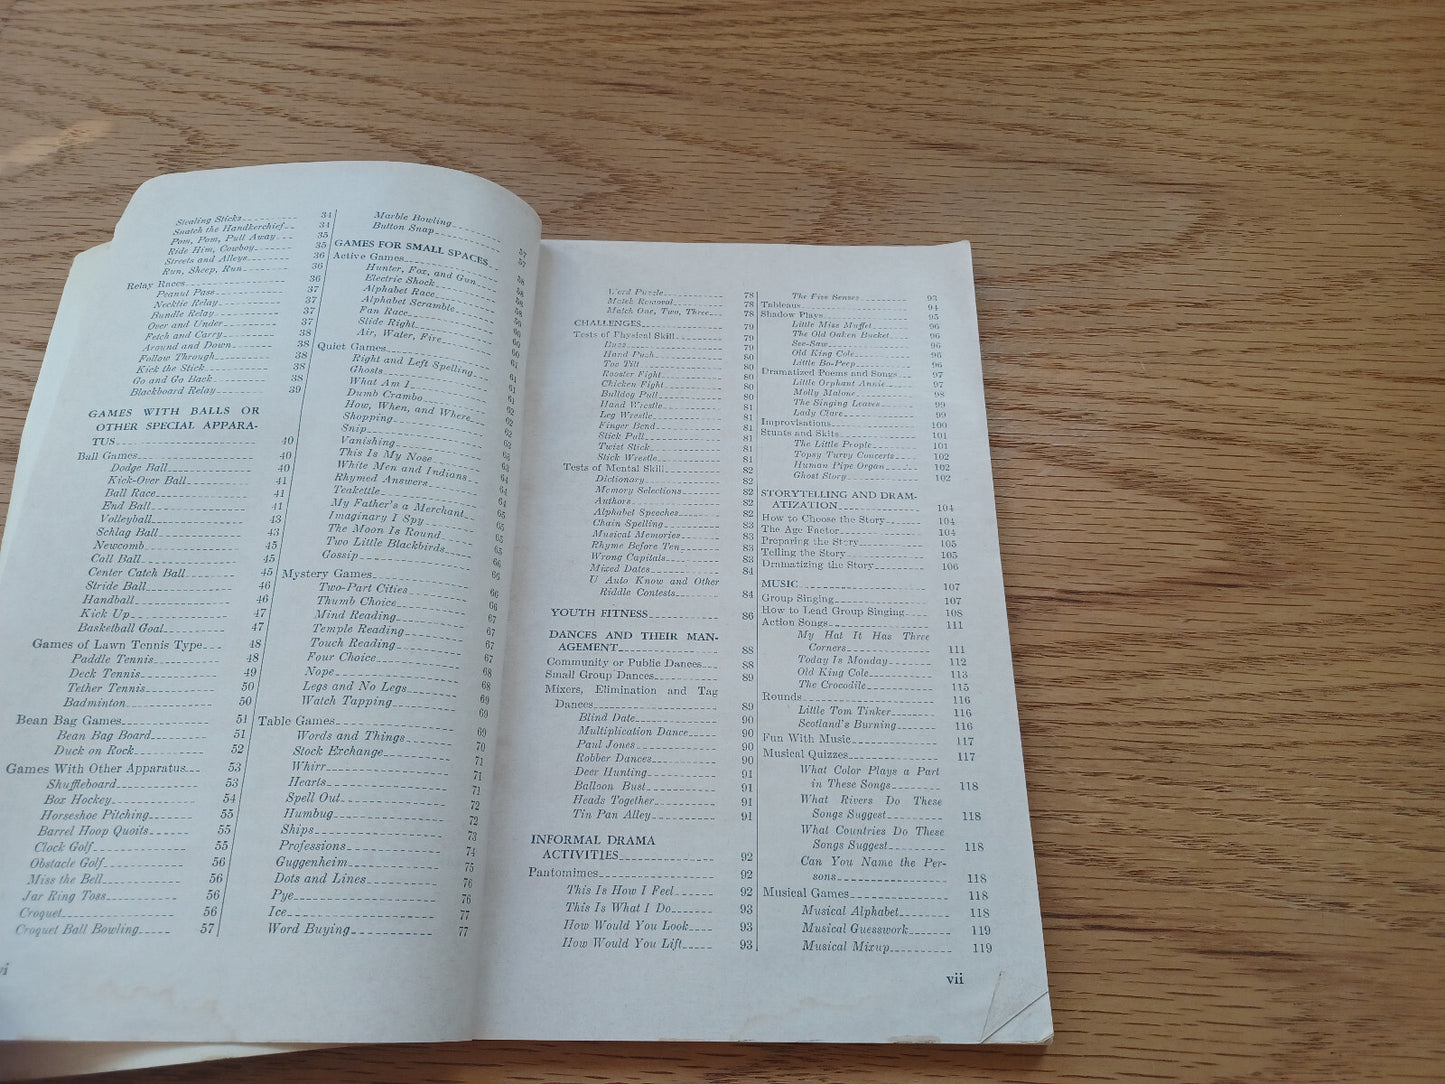 Stealing Sticks 34
Snatch the Handkerchief 34
Pom, Pom, Pull Away 35
Ride Him, Cowboy 35
Streets and Alleys 36
Run, Sheep, Run 36
Relay Races 36
Peanut Pass 37
Necktie Relay 37
Bundle Relay 37
Over and Under 37
Fetch and Carry 38
Around and Down 38
Follow Through 38
Kick the Stick 38
Go and Go Back 38
Blackboard Relay 39
GAMES WITH BALLS OR
OTHER SPECIAL APPARA-
TUS 40
Ball Games 40
Dodge Ball 40
Kick-Over Ball 41
Ball Race 41
End Ball 41
Volleyball 43
Schlag Ball 43
Newcomb 45
Call Ball 45
Center Catch Ball 45
Stride Ball 46
Handball 46
Kick Up 47
Basketball Goal 47
Games of Lawn Tennis Type 48
Paddle Tennis 48
Deck Tennis 49
Tether Tennis 50
Badminton 50
Bean Bag Games 51
Bean Bag Board 51
Duck on Rock 52
Games With Other Apparatus 53
Shuffleboard 53
Box Hockey 54
Horseshoe Pitching 55
Barrel Hoop Quoits 55
Clock Golf 55
Obstacle Golf 56
Miss the Bell 56
Jar Ring Toss 56
Croquet 56
Croquet Ball Bowling 57
vi
Marble Bowling 57
Button Snap 57
GAMES FOR SMALL SPACES 58
Active Games 58
Hunter, Fox, and Gun 58
Electric Shock
Alphabet Race
Alphabet Scramble
Fan Race 60
Slide Right 60
Air, Water, Fire
Quiet Games 61
Right and Left Spelling 61
Ghosts 61
What Am I
Dumb Crambo 62
How, When, and Where 62
Shopping 62
Snip
Vanishing 63
This Is My Nose
White Men and Indians 64
Rhymed Answers 64
Teakettle
My Father's a Merchant 65
Imaginary I Spy 65
The Moon Is Round 65
Two Little Blackbirds
Gossip 66
Mystery Games 66
Two-Part Cities 66
Thumb Choice
Mind Reading 67
Temple Reading 67
Touch Reading 67
Four Choice
Nope 68
Legs and No Legs
Watch Tapping 69
Table Games 69
Words and Things 70
Stock Exchange 71
Whirr 71
Hearts 71
Spell Out 72
Humbug 72
Ships 73
Professions 74
Guggenheim 75
Dots and Lines 76
Pye 76
Ice 77
Word Buying 77
Word Puzzle 78
Match Removal 78
Match One, Two, Three 78
CHALLENGES 79
Tests of Physical Skill 79
Buzz 79
Hand Push 80
Toe Tilt 80
Rooster Fight 80
Chicken Fight 80
Bulldog Pull 80
Hand Wrestle 81
Leg Wrestle 81
Finger Bend 81
Stick Pull 81
Twist Stick 81
Stick Wrestle 81
Tests of Mental Skill 82
Dictionary 82
Memory Selections 82
Authors 82
Alphabet Speeches 82
Chain Spelling 83
Musical Memories 83
Rhyme Before Ten 83
Wrong Capitals 83
Mixed Dates 84
U Auto Know and Other
Riddle Contests 84
YOUTH FITNESS 86
DANCES AND THEIR MAN-
AGEMENT 88
Community or Public Dances 88
Small Group Dances 89
Mixers, Elimination and Tag
Dances 89
Blind Date 90
Multiplication Dance 90
Paul Jones 90
Robber Dances 90
Deer Hunting 91
Balloon Bust 91
Heads Together 91
Tin Pan Alley 91
INFORMAL DRAMA
ACTIVITIES 92
Pantomimes 92
This Is How I Feel 92
This Is What I Do 93
How Would You Look 93
How Would You Lift 93
The Five Senses 93
Tableaus 94
Shadow Plays 95
Little Miss Muffet 96
The Old Oaken Bucket 96
See-Saw 96
Old King Cole 96
Little Bo-Peep 96
Dramatized Poems and Songs 97
Little Orphant Annie 97
Molly Malone 98
The Singing Leaves 99
Lady Clare 99
Improvisations 100
Stunts and Skits 101
The Little People 101
Topsy Turvy Concerts 102
Human Pipe Organ 102
Ghost Story 102
STORYTELLING AND DRAM-
ATIZATION 104
How to Choose the Story 104
The Age Factor 104
Preparing the Story 105
Telling the Story 105
Dramatizing the Story 106
MUSIC 107
Group Singing 107
How to Lead Group Singing 108
Action Songs 111
My Hat It Has Three
Corners 111
Today Is Monday 112
Old King Cole 113
The Crocodile 115
Rounds 116
Little Tom Tinker 116
Scotland's Burning 116
Fun With Music 117
Musical Quizzes 117
What Color Plays a Part
in These Songs 118
What Rivers Do These
Songs Suggest 118
What Countries Do These
Songs Suggest 118
Can You Name the Per-
sons 118
Musical Games 118
Musical Alphabet 118
Musical Guesswork 119
Musical Mixup 119
vii